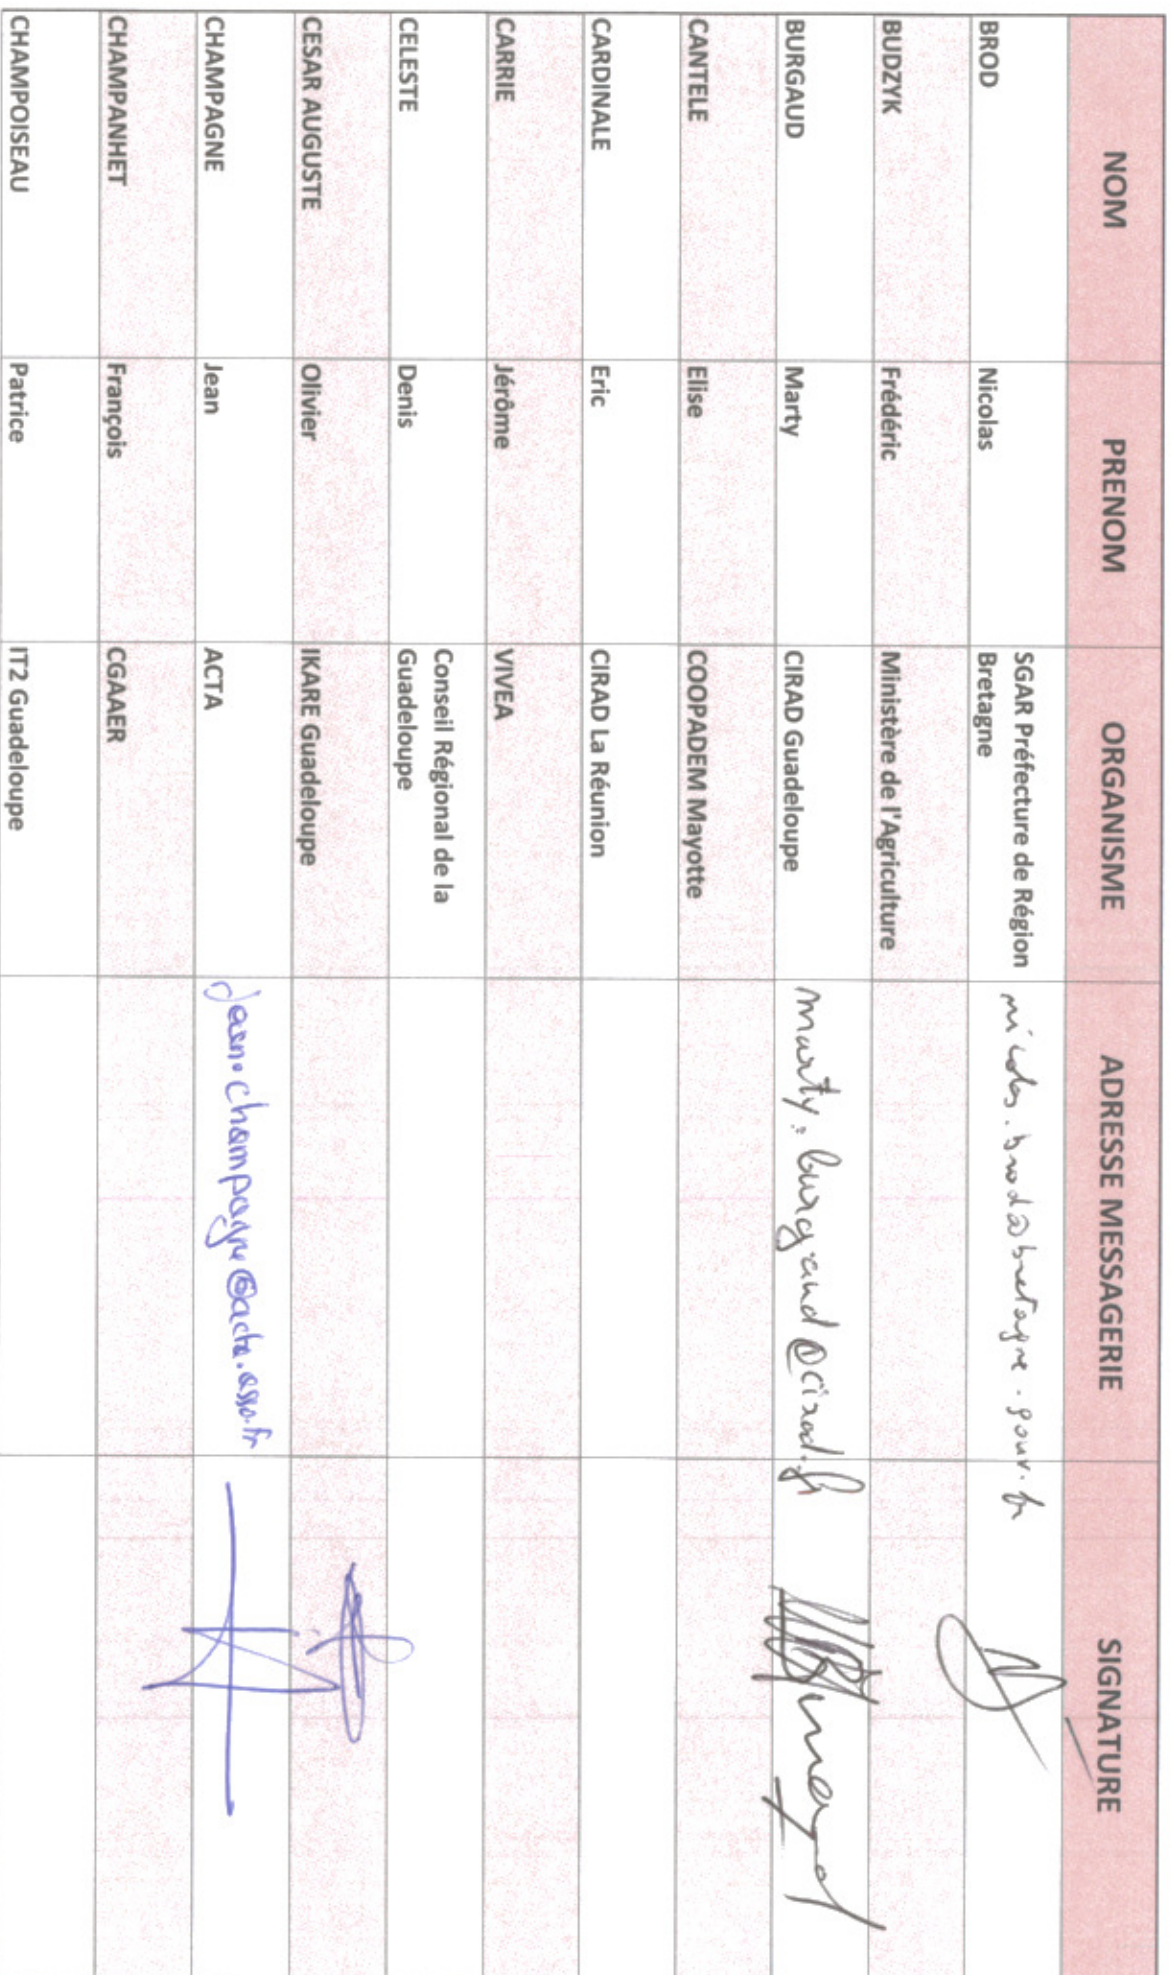 NOM PRENOM ORGANISME ADRESSE MESSAGERIE SIGNATURE
BROD Nicolas SGAR Préfecture de Région
Bretagne nicolas.brod@bretagne.gouv.fr
BUDZYK Frédéric Ministère de l'Agriculture
BURGAUD Marty CIRAD Guadeloupe marty.burgaud@cirad.fr
CANTELE Elise COOPADEM Mayotte
CARDINALE Eric CIRAD La Réunion
CARRIE Jérôme VIVEA
CELESTE Denis Conseil Régional de la
Guadeloupe
CESAR AUGUSTE Olivier IKARE Guadeloupe
CHAMPAGNE Jean ACTA jean.champagne@acta.asso.fr
CHAMPANHET François CGAAER
CHAMPOISEAU Patrice IT2 Guadeloupe